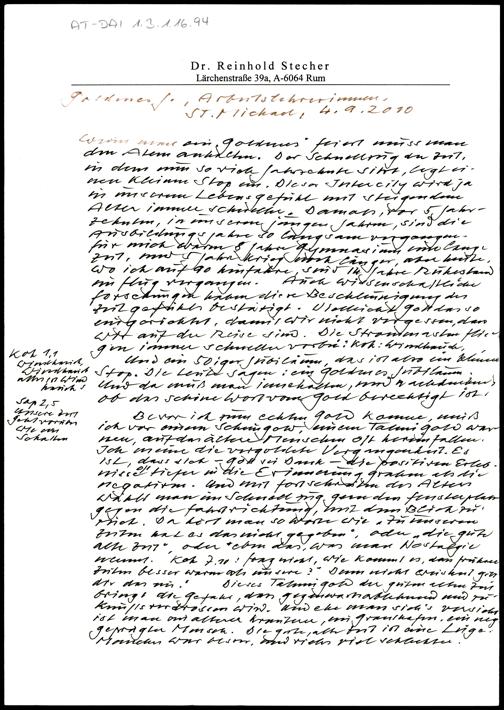 AT-DAI 1.3.1.16.94
Dr. Reinhold Stecher
Lärchenstraße 39a, A-6064 Rum
Goldenes J., Arbeitslehrerinnen,
St. Michael, 4.9.2010
Wenn man ein "Goldenes" feiert muss man
den Atem anhalten. Der Schnellzug der Zeit,
in dem man so viele Jahrzehnte sitzt, legt ei-
nen kleinen Stop ein. Dieser Intercity wird ja
in unserem Lebensgefühl mit steigendem
Alter immer schneller. Damals, vor 5 Jahr-
zehnten, in unseren jungen Jahren, sind die
Ausbildungsjahre so langsam vergangen.
für mich waren 8 Jahre Gymnasium eine lange
Zeit, und 5 Jahre Krieg noch länger, aber heute,
wo ich auf 90 hinfahre, sind 14 Jahre Ruhestand
im Flug vergangen. Auch wissenschaftliche
Forschungen haben diese Beschleunigung des
Zeitgefühls bestätigt. Vielleicht hat Gott das so
eingerichtet, damit wir nicht vergessen, dass
wir auf der Reise sind. Die Strommasten flie-
gen immer schneller vorbei: Koh: Windhauch,
Koh 1,1
Windhauch,
Windhauch
alles ist Wind
hauch
Und ein 50iger Jubiläum, das ist also ein kleiner
Stop. Die Leute sagen: ein goldenes Jubiläum.
Und da muß man innehalten, und nachdenken,
ob das schöne Wort vom Gold berechtigt ist.
Sap 2,5
Unsere Zeit
geht vorüber
wie ein
Schatten
Bevor ich zum echten Gold komme, muß
ich vor einem Scheingold, einem Talmigold war
nen, auf das ältere Menschen oft hereinfallen.
Ich meine die vergoldete Vergangenheit. Es
ist, dass sich – Gott sei Dank – die positiven Erleb-
nisse tiefer in die Erinnerung graben als die
negativen. Und mit fortschreitendem Alter
wählt man im Schnellzug gern den Fensterplatz
gegen die Fahrtrichtung, mit dem Blick zu-
rück. Da hört man so Worte wie "zu unseren
Zeiten hat es das nicht gegeben", oder "die gute
alte Zeit", oder eben das, was man Nostalgie
nennt. Koh 7,10: frag nicht, wie kommt es, dass frühere
Zeiten besser waren als unsere?
Dieses Talmigold der guten alten Zeit
bringt die Gefahr, dass gegenwartsablehnend und zu-
kunftsverdrossen wird. Und ehe man sich's versieht
ist man ein älterer
Mensch. Die gute, alte Zeit ist eine Lüge.
Manches war besser, und vieles viel schlechter.